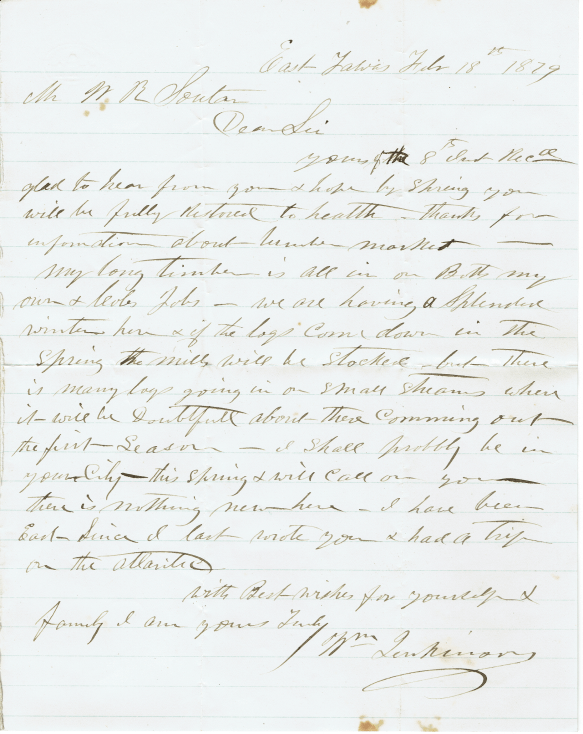 East Tawas Feb 18th 1879
Mr W R
Dear Sir
yours of the 8th Inst Recd
glad to hear from you & hope by Spring you
will be fully Restored to health - thanks for
information about lumber market -
My long timber is all in on Both my
own & Jobs - we are having a Splended
winter here & if the logs Come down in the
Spring the mills will be Stocked - but there
is many logs going in on Small Streams where
it will be Doubtfull about there Comming out
the first Season - I Shall probbly be in
your City this Spring & will Call on you
there is nothing new here - I have been
East Since I last wrote you & had a trip
on the atlantic
with Best wishes for yourself &
family I am yours Truly
Wm Jenkinson